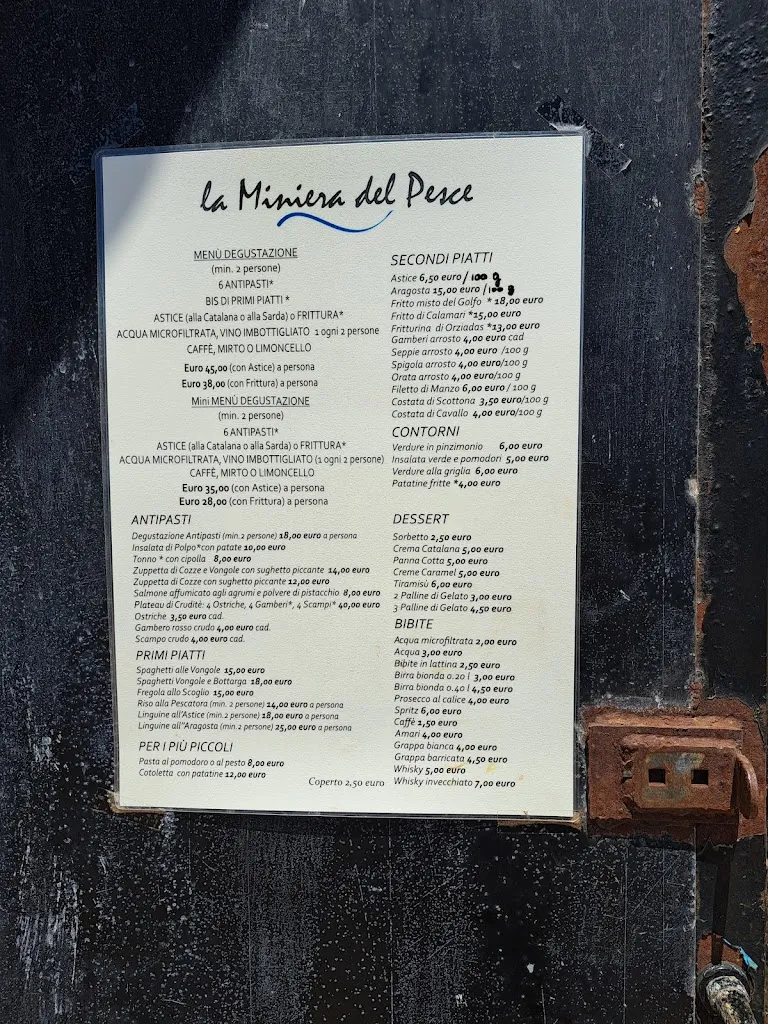 la Miniera del Pesce
MENÙ DEGUSTAZIONE
(min. 2 persone)
6 ANTIPASTI*
BIS DI PRIMI PIATTI *
ASTICE (alla Catalana o alla Sarda) o FRITTURA*
ACQUA MICROFILTRATA, VINO IMBOTTIGLIATO 1 ogni 2 persone
CAFFÈ, MIRTO O LIMONCELLO
Euro 45,00 (con Astice) a persona
Euro 38,00 (con Frittura) a persona
Mini MENÙ DEGUSTAZIONE
(min. 2 persone)
6 ANTIPASTI*
ASTICE (alla Catalana o alla Sarda) o FRITTURA*
ACQUA MICROFILTRATA, VINO IMBOTTIGLIATO (1 ogni 2 persone)
CAFFÈ, MIRTO O LIMONCELLO
Euro 35,00 (con Astice) a persona
Euro 28,00 (con Frittura) a persona
ANTIPASTI
Degustazione Antipasti (min.2 persone) 18,00 euro a persona
Insalata di Polpo*con patate 10,00 euro
Tonno * con cipolla 8,00 euro
Zuppetta di Cozze e Vongole con sughetto piccante 14,00 euro
Zuppetta di Cozze con sughetto piccante 12,00 euro
Salmone affumicato agli agrumi e polvere di pistacchio 8,00 euro
Plateau di Crudité: 4 Ostriche, 4 Gamberi*, 4 Scampi* 40,00 euro
Ostriche 3,50 euro cad.
Gambero rosso crudo 4,00 euro cad.
Scampo crudo 4,00 euro cad.
PRIMI PIATTI
Spaghetti alle Vongole 15,00 euro
Spaghetti Vongole e Bottarga 18,00 euro
Fregola allo Scoglio 15,00 euro
Riso alla Pescatora (min. 2 persone) 14,00 euro a persona
Linguine all'Astice (min. 2 persone) 18,00 euro a persona
Linguine all''Aragosta (min.2 persone) 25,00 euro a persona
PER I PIÙ PICCOLI
Pasta al pomodoro o al pesto 8,00 euro
Cotoletta con patatine 12,00 euro
Coperto 2,50 euro
SECONDI PIATTI
Astice 6,50 euro / 100 g
Aragosta 15,00 euro /100 g
Fritto misto del Golfo * 18,00 euro
Fritto di Calamari *15,00 euro
Fritturina di Orziadas *13,00 euro
Gamberi arrosto 4,00 euro cad
Seppie arrosto 4,00 euro /100 g
Spigola arrosto 4,00 euro/100 g
Orata arrosto 4,00 euro/100 g
Filetto di Manzo 6,00 euro / 100 g
Costata di Scottona 3,50 euro/100 g
Costata di Cavallo 4,00 euro/100 g
CONTORNI
Verdure in pinzimonio 6,00 euro
Insalata verde e pomodori 5,00 euro
Verdure alla griglia 6,00 euro
Patatine fritte *4,00 euro
DESSERT
Sorbetto 2,50 euro
Crema Catalana 5,00 euro
Panna Cotta 5,00 euro
Creme Caramel 5,00 euro
Tiramisù 6,00 euro
2 Palline di Gelato 3,00 euro
3 Palline di Gelato 4,50 euro
BIBITE
Acqua microfiltrata 2,00 euro
Acqua 3,00 euro
Bibite in lattina 2,50 euro
Birra bionda 0.20 l 3,00 euro
Birra bionda 0.40 l 4,50 euro
Prosecco al calice 4,00 euro
Spritz 6,00 euro
Caffè 1,50 euro
Amari 4,00 euro
Grappa bianca 4,00 euro
Grappa barricata 4,50 euro
Whisky 5,00 euro
Whisky invecchiato 7,00 euro